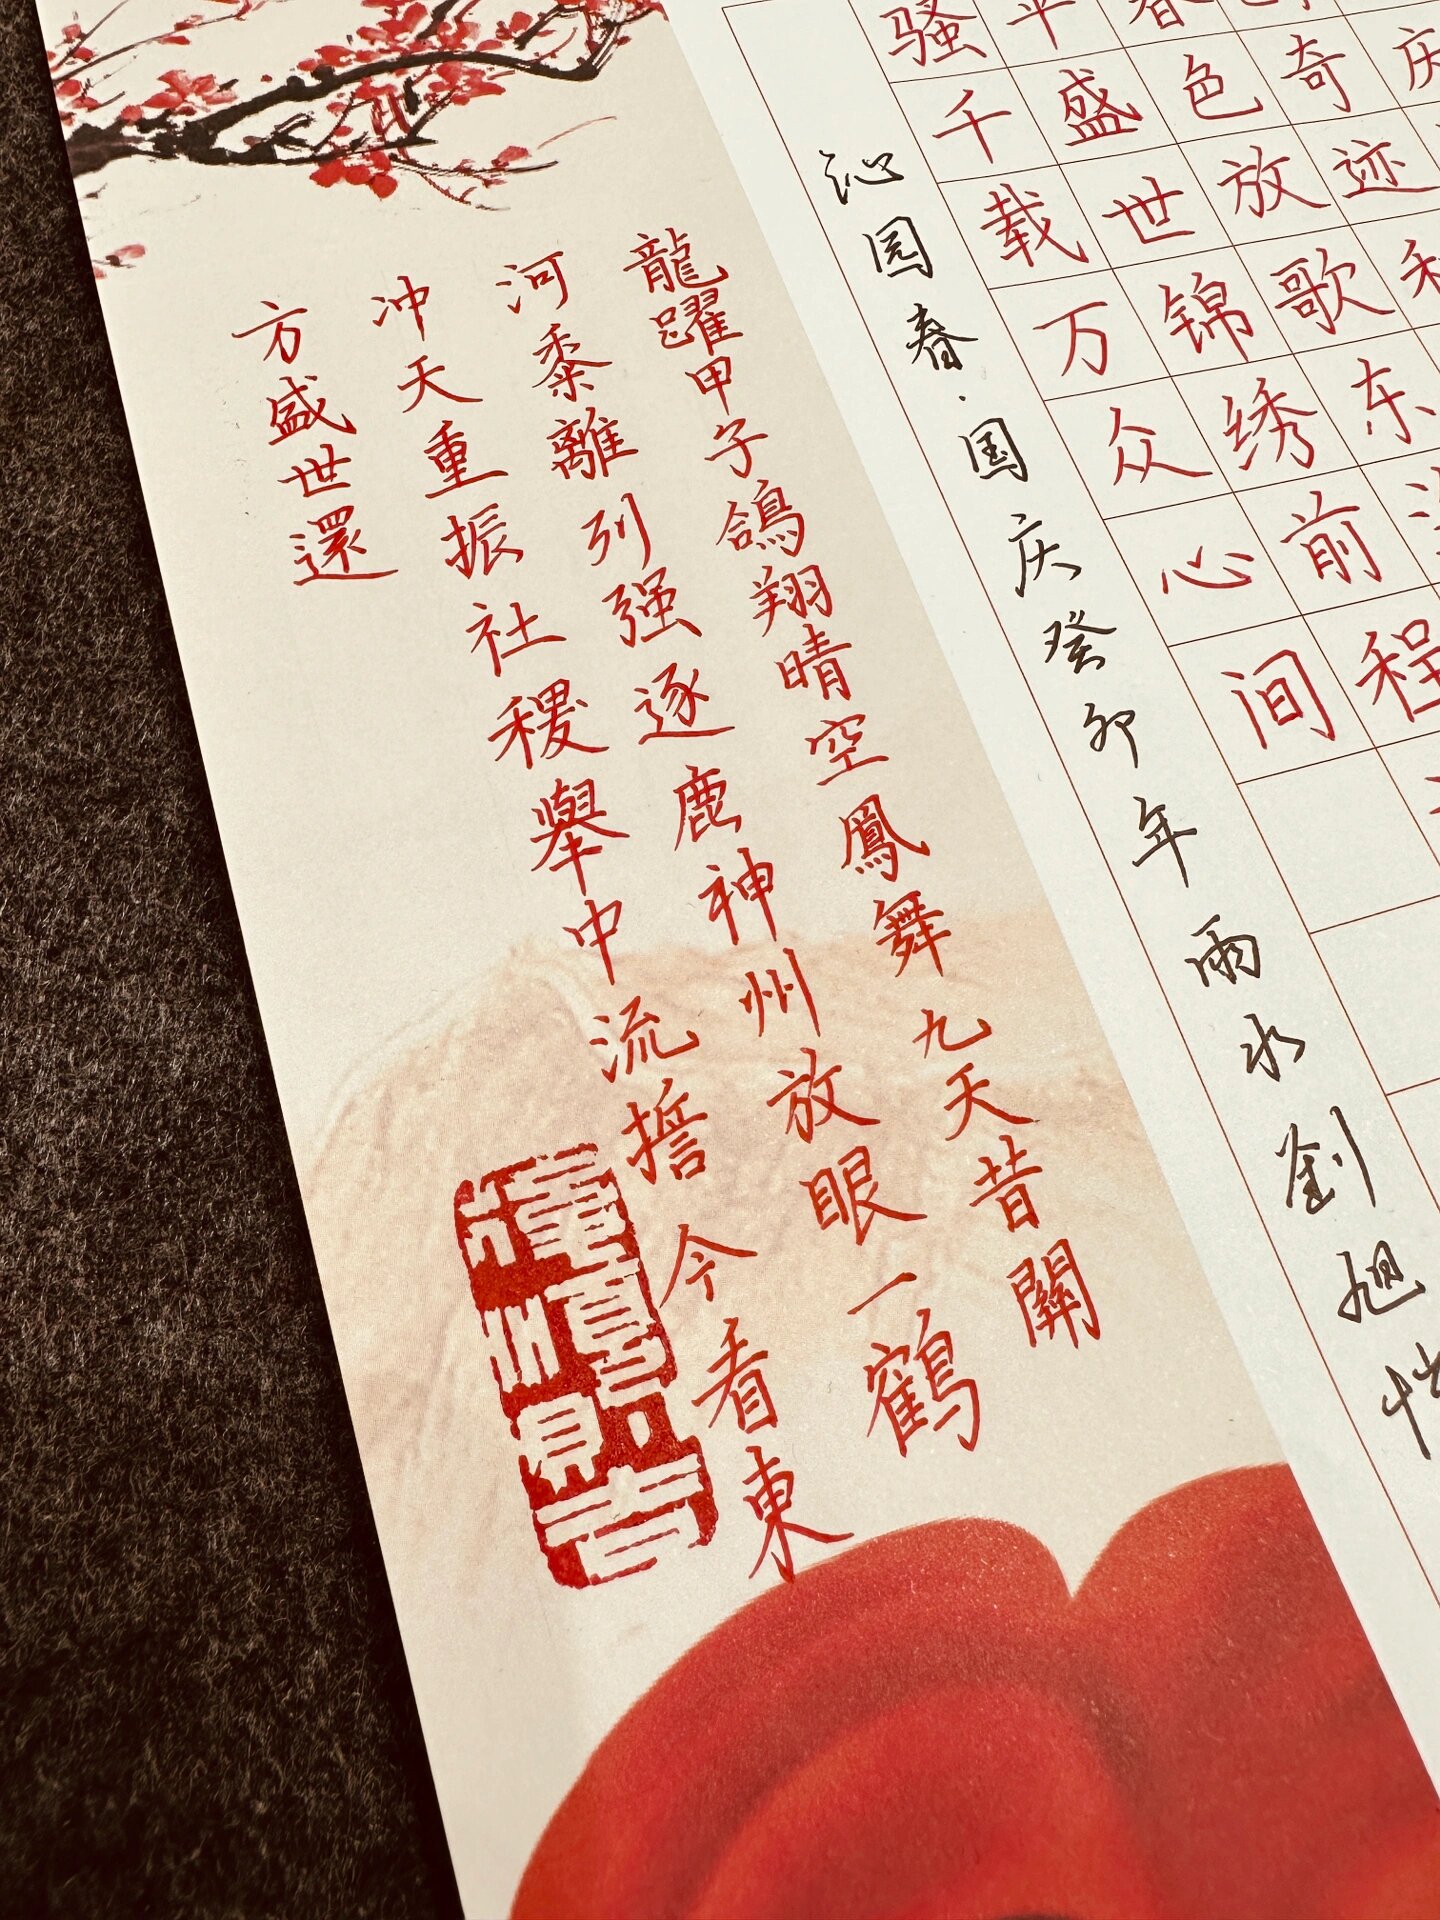 奇迹
春色放歌东
平盛世锦绣前程
骚千载万众心间
沁园春·国庆癸卯年雨水劉旭
龍躍甲子鴿翔晴空鳳舞九天昔關
河黍離列强逐鹿神州放眼一鶴
冲天重振社稷舉中流誓今看東
方盛世還